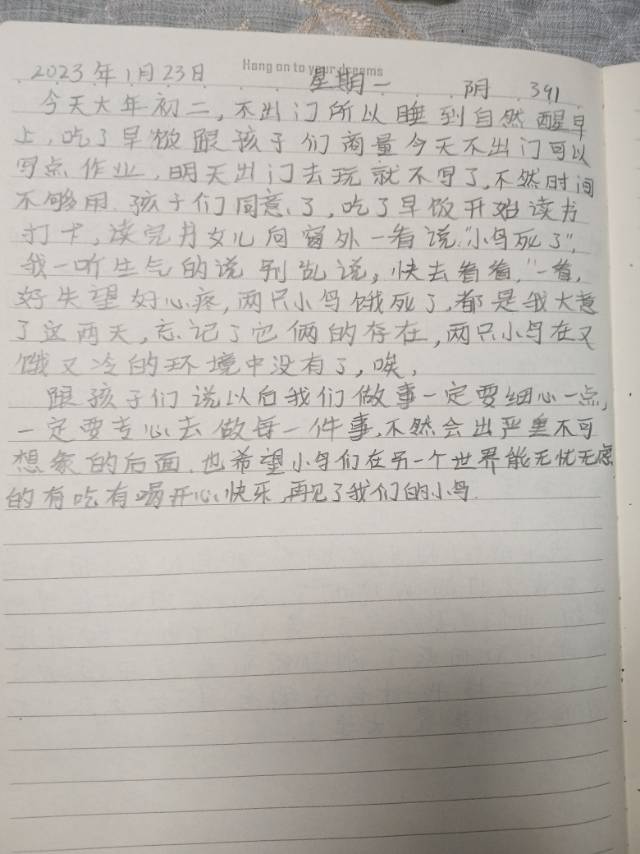 Hang on to your dreams
2023年1月23日 星期一 阴 391
今天大年初二,不出门所以睡到自然醒早
上,吃了早饭跟孩子们商量今天不出门可以
写点作业,明天出门去玩就不写了,不然时间
不够用.孩子们同意了,吃了早饭开始读书
打卡,读完丹女儿向窗外一看说:“小鸟死了”,
我一听生气的说别乱说,快去看看,“一看,
好失望好心疼,两只小鸟饿死了,都是我大意
了这两天,忘记了它俩的存在,两只小鸟在又
饿又冷的环境中没有了,唉,
跟孩子们说以后我们做事一定要细心一点,
一定要专心去做每一件事,不然会出严重不可
想象的后面.也希望小鸟们在另一个世界能无忧无虑
的有吃有喝开心快乐,再见了我们的小鸟.